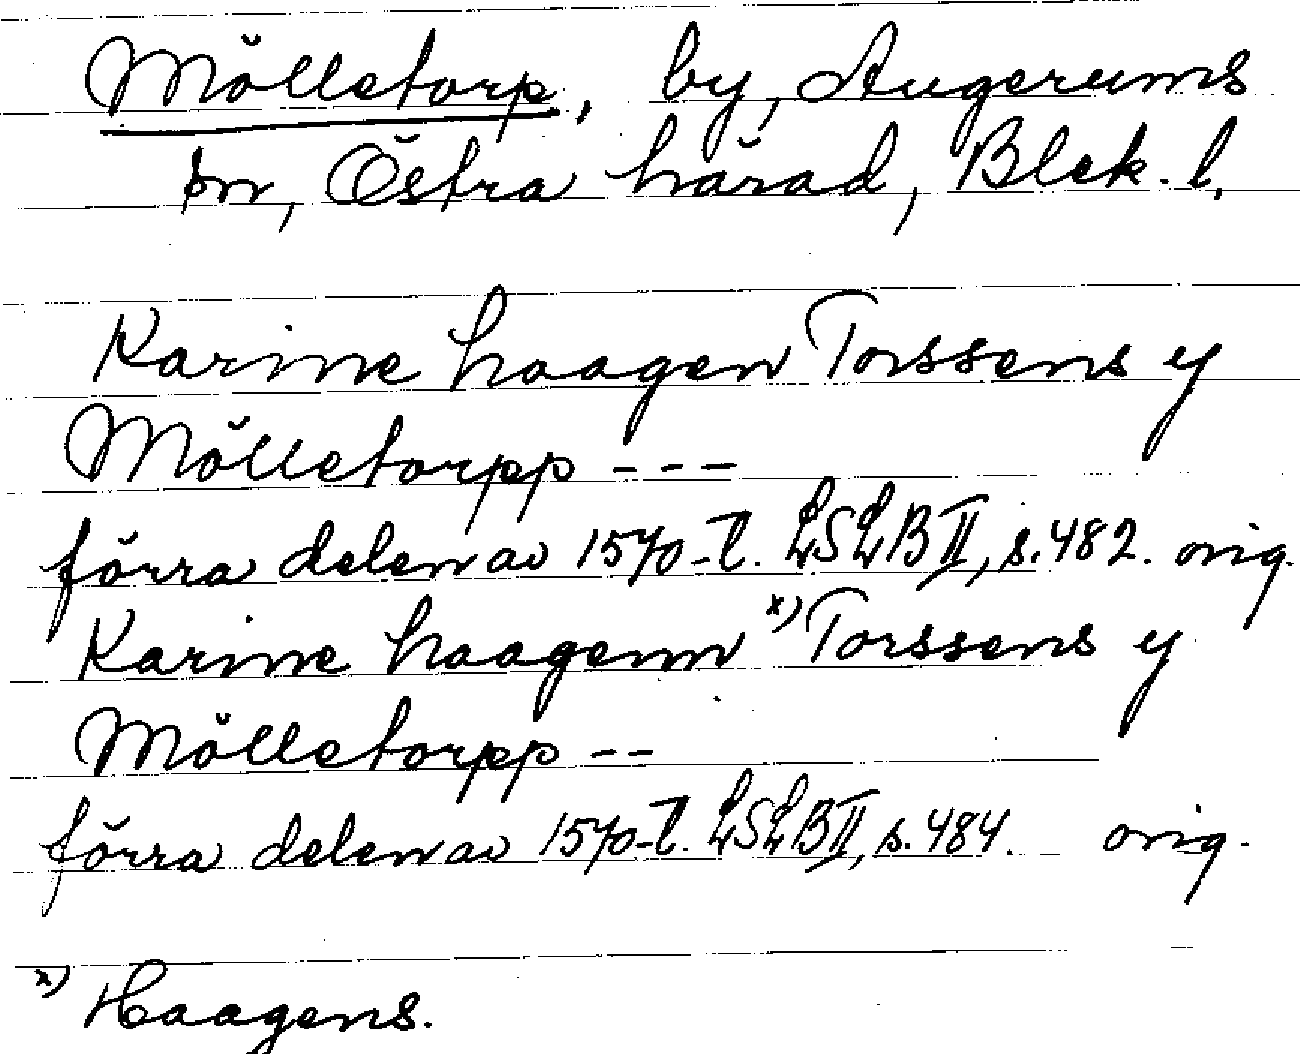 Mölletorp, by, Augerums
sn, Östra härad, Blek. l.
Karine haagen Torssens y
Mölletorpp ---
förra delen av 1570-t. LSLB II, s. 482. orig.
Karine haagenn x) Torssens y
Mölletorpp --
förra delen av 1570-t. LSLB II, s. 484. orig.
x) Haagens.